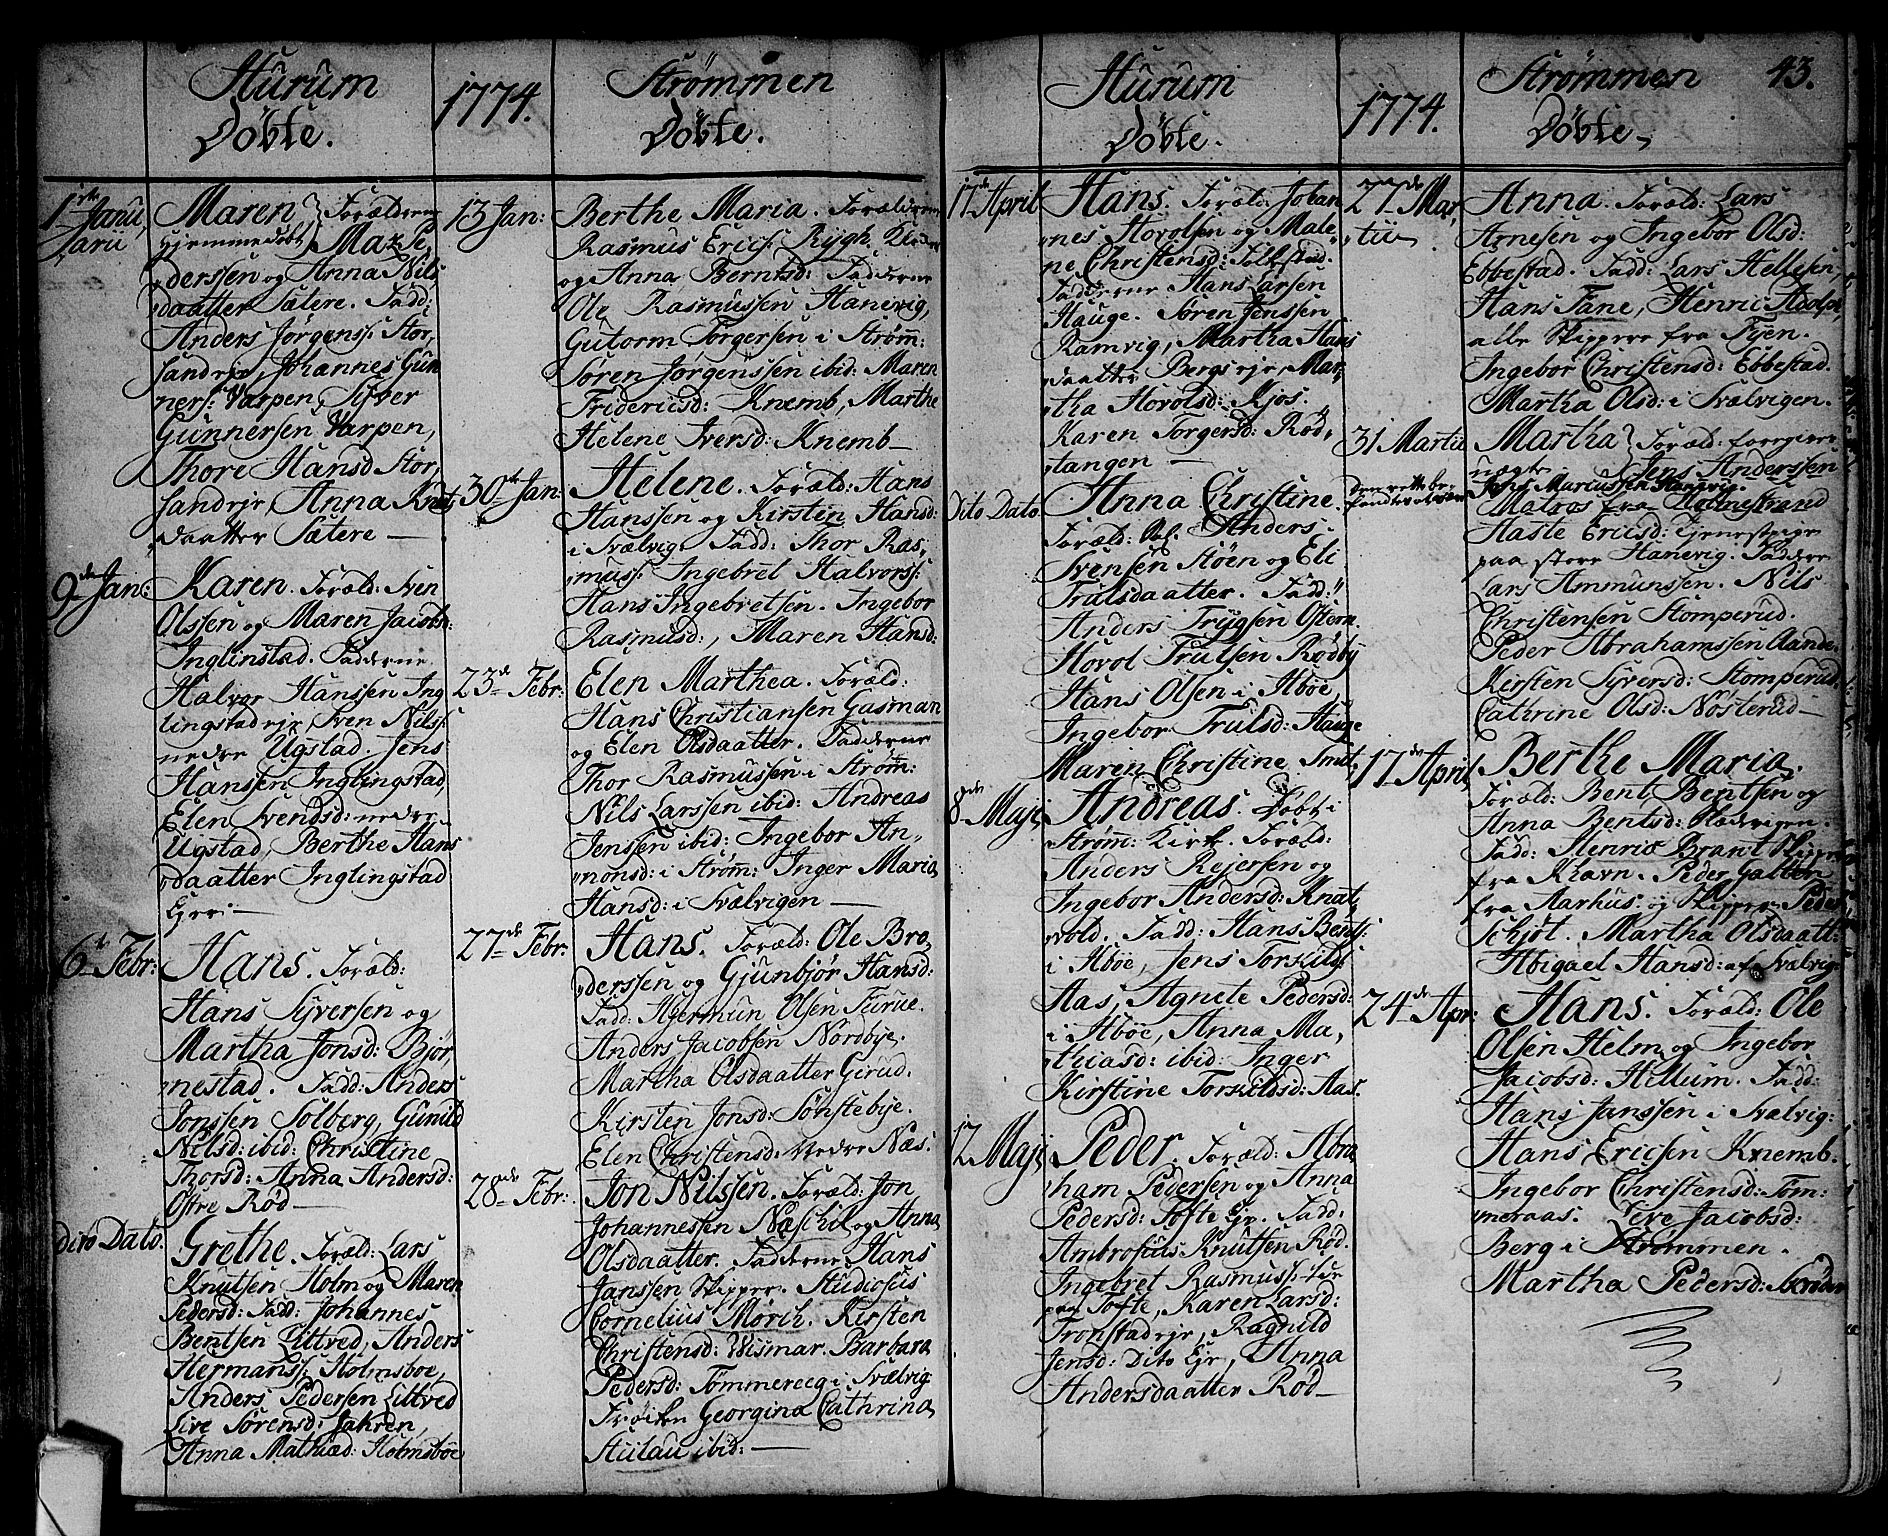 Hurum
Döbte.
1774.
Strømmen
Döbte.
1ste Janu,
Jarii
Maren } Foræld:
hjemmedöbt } Maz Pe,
derssen og Anna Nils,
daatter Sætere. Fadd:
Anders Jörgenss: Stor,
sandeje, Johannes Gun
ners: Varpen, Syver
Gunnersen Varpen,
Thore Hansd Stor,
sandeje, Anna Knuts,
daatter Sætere —
9de Jan:
Karen. Foræld: Sven
Olssen og Maren Jacobs:
Inglinstad. Fadderne
Halvor Hanssen Ing
lingstadeje, Sven Nilss:
nedre Ugstad. Jens
Hanssen Inglingstad,
Elen Svendsd: nedre
Ugstad, Berthe Hans
daatter Inglingstad
Ejer: —
6te Febr:
Hans. Foræld:
Hans Syversen og
Martha Jonsd: Bjør,
nestad. Fadd: Anders
Jonssen Solberg, Gunild
Nilsd: ibid: Christine
Thorsd: Anna Andersd:
Östre Röd —
Dito Dato.
Grethe. Foræld: Lars
Knutsen Holm og Maren
Pedersd: Fadd: Johannes
Bentsen Littved, Anders
Hermanss: Holmsboe,
Anders Pedersen Littved
Live Sörensd: Jahren,
Anna Mathiæd: Holmsböe
13 Jan:
Berthe Maria. Forælderne
Rasmus Erics: Rygh
og Anna Berntsd: Fadderne
Ole Rasmussen Hanevig,
Gutorm Torgersen i Strömm:
Sören Jörgenssen ibid: Maren
Fridericsd: Knemb, Marthe
Helene Iversd: Knemb —
30te Jan:
Helene. Foræld: Hans
Hanssen og Kirsten Hansd:
i Svælvig. Fadd: Thor Ras,
muss: Ingebret Halvorss:
Hans Ingebretsen. Ingebor
Rasmusd:, Maren Hansd:
23de Febr:
Elen Marthea. Foræld:
Hans Christiansen Gasman
og Elen Olsdaatter. Fadderne
Thor Rasmussen i Strøm:
Nils Larssen ibid: Andreas
Jenssen ibid: Ingebor An,
monsd: i Strøm: Inger Maria
Hansd: i Svælvigen —
27de Febr:
Hans. Foræld: Ole Bro,
derssen og Gjunbjør Hansd:
Fadd: Hjermun Olsen Furue.
Anders Jacobsen Nordbye.
Martha Olsdaatter Girud.
Kirsten Jonsd: Sönstebye.
Elen Christensd: Nedre Næs.
28de Febr:
Jon Nilssen. Foræld: Jon
Johannessen Næschil og Anna
Olsdaatter. Fadderne Hans
Janssen Skipper. Studiosus
Cornelius Mörch. Kirsten
Christensd: Wismar. Barbara
Pedersd: Tömmereeg i Svælvig
Fröiken Georgina Cathrina
Stutau ibid: —
Hurum
Döbte.
1774.
Strømmen
Döbte
43.
17de April
Hans. Foræld: Johan
nes Hovolsen og Male,
ne Christensd: Tollefstad.
Fadderne Hans Larsen
Hauge. Sören Jenssen
Ramvig, Martha Hans
daatter Bergseje, Mar,
tha Hovolsd: Kjos.
Karen Torgersd: Röd,
tangen —
Dito Dato.
Anna Christine.
Foræld: Anders
Svensen Stöen og Eli
Trulsdaatter. Fadd:
Anders Trygsen Östern.
Hovol Trulsen Rödby
Hans Olsen i Åböe,
Ingebor Trulsd: Hauge
Maren Christine Smit,
8de Maji,
Andreas. Döbt i
Strøm: Kirke. Foræld:
Anders Rejersen og
Ingebor Andersd: Knat,
vold. Fadd: Hans Bents:
i Åböe, Jens Torkilds:
Aas, Agnete Pedersd:
i Åböe, Anna Ma,
thiasd: ibid: Inger
Kirstine Torskildsd: Aas.
12 Maji,
Peder. Foræld: Abra,
ham Pedersen og Anna
Pedersd: Tofte Ejr. Fadd:
Ambrosius Knutsen Röd.
Ingebret Rasmuss:
paa Tofte, Karen Larsd:
Tronstadeje, Ragnild
Jensd: Dito Ejr, Anna
Andersdaatter Röd —
27de Mar,
tii
Anna. Foræld: Lars
Arnesen og Ingebor Olsd:
Ebbestad. Fadd: Lars Hellesen,
Hans Fane, Henric Adolph,
alle Skippere fra Fyen.
Ingebor Christensd: Ebbestad.
Martha Olsd: i Svælvigen.
31 Martii
Martha } Foræld:
uægte } Jens Anderssen
Jens Mariussen Hanevig.
Matros fra Holmestrand
Haste Ericsd: Tjenestpige
paa store Hanevig. Faddere
Lars Ammunsen. Nils
Christensen Stomperud.
Peder Abrahamssen Aande,
Kirsten Syversd: Stomperud,
Cathrine Olsd: Nösterud —
17de April,
Berthe Maria.
Foræld: Bent Bentsen og
Anna Bentsd:
Fadd: Henric Brant
fra Khavn. Peder Galten
fra Aarhus. og Skipper Peder
Schjöt. Martha Olsdaatt:
Abigael Hansd: af Svælvig.
24de Apr:
Hans. Foræld: Ole
Olsen Helm og Ingebor
Jacobsd: Hellum. Fadd:
Hans Janssen i Svælvig:
Hans Ericsen Knemb.
Ingebor Christensd: Tøm:
meraas. Live Jacobsd:
Berg i Strømmen.
Martha Pedersd: